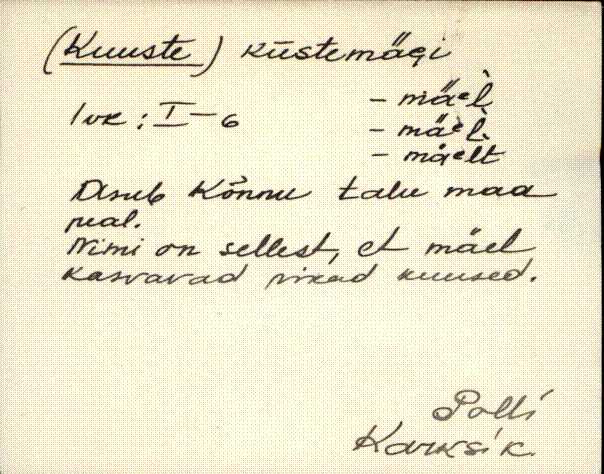 (Kuuste) küstemägi
- mäel̀
Ivk: I-6
- mäel̀.
- mäelt
Asub Kõnnu talu maa
peal.
Nimi on sellest, et mäel
kasvavad pikad kuused.
Polli
Karksi k.